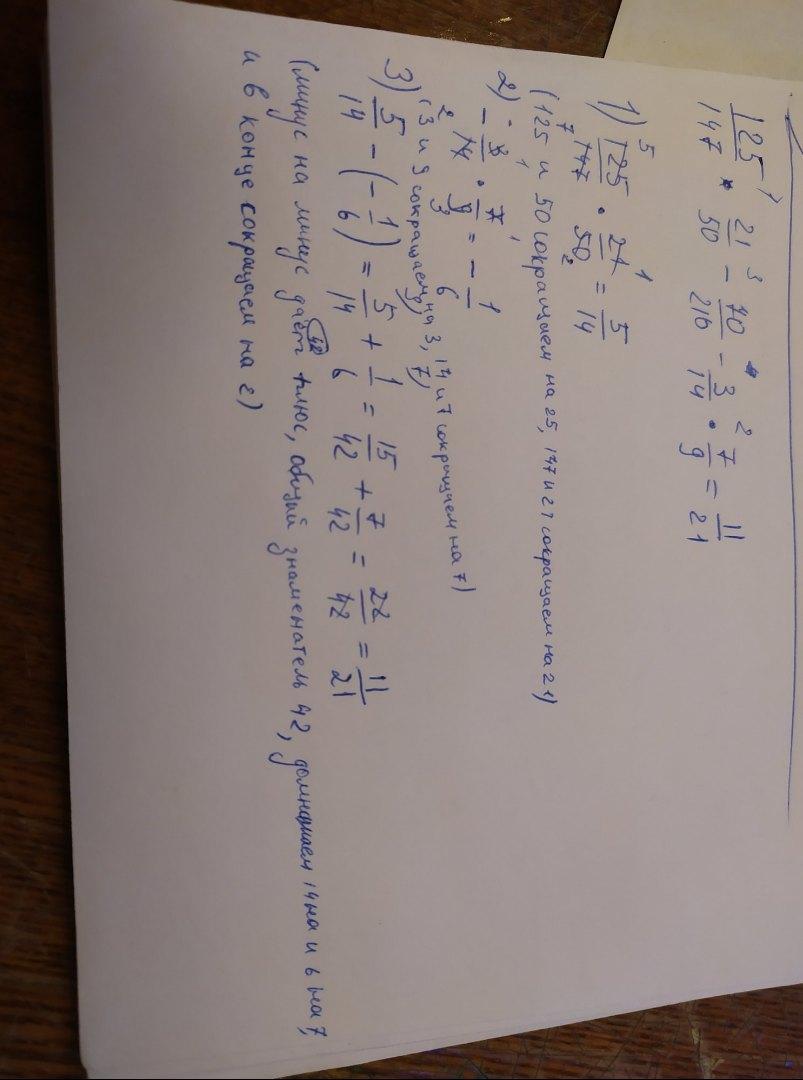 125/147 * 21/50 - 70/216 - 3/14 • 7/9 = 11/21
1) 125/147 • 21/50 = 5/14
(125 и 50 сокращаем на 25, 147 и 21 сокращаем на 21)
2) - 3/14 • 7/9 = - 1/6
(3 и 9 сокращаем на 3, 14 и 7 сокращаем на 7)
3) 5/14 - (- 1/6) = 5/14 + 1/6 = 15/42 + 7/42 = 22/42 = 11/21
(минус на минус даёт плюс, общий знаменатель 42, домножаем 14 на и 6 на 7,
и в конце сокращаем на 2)